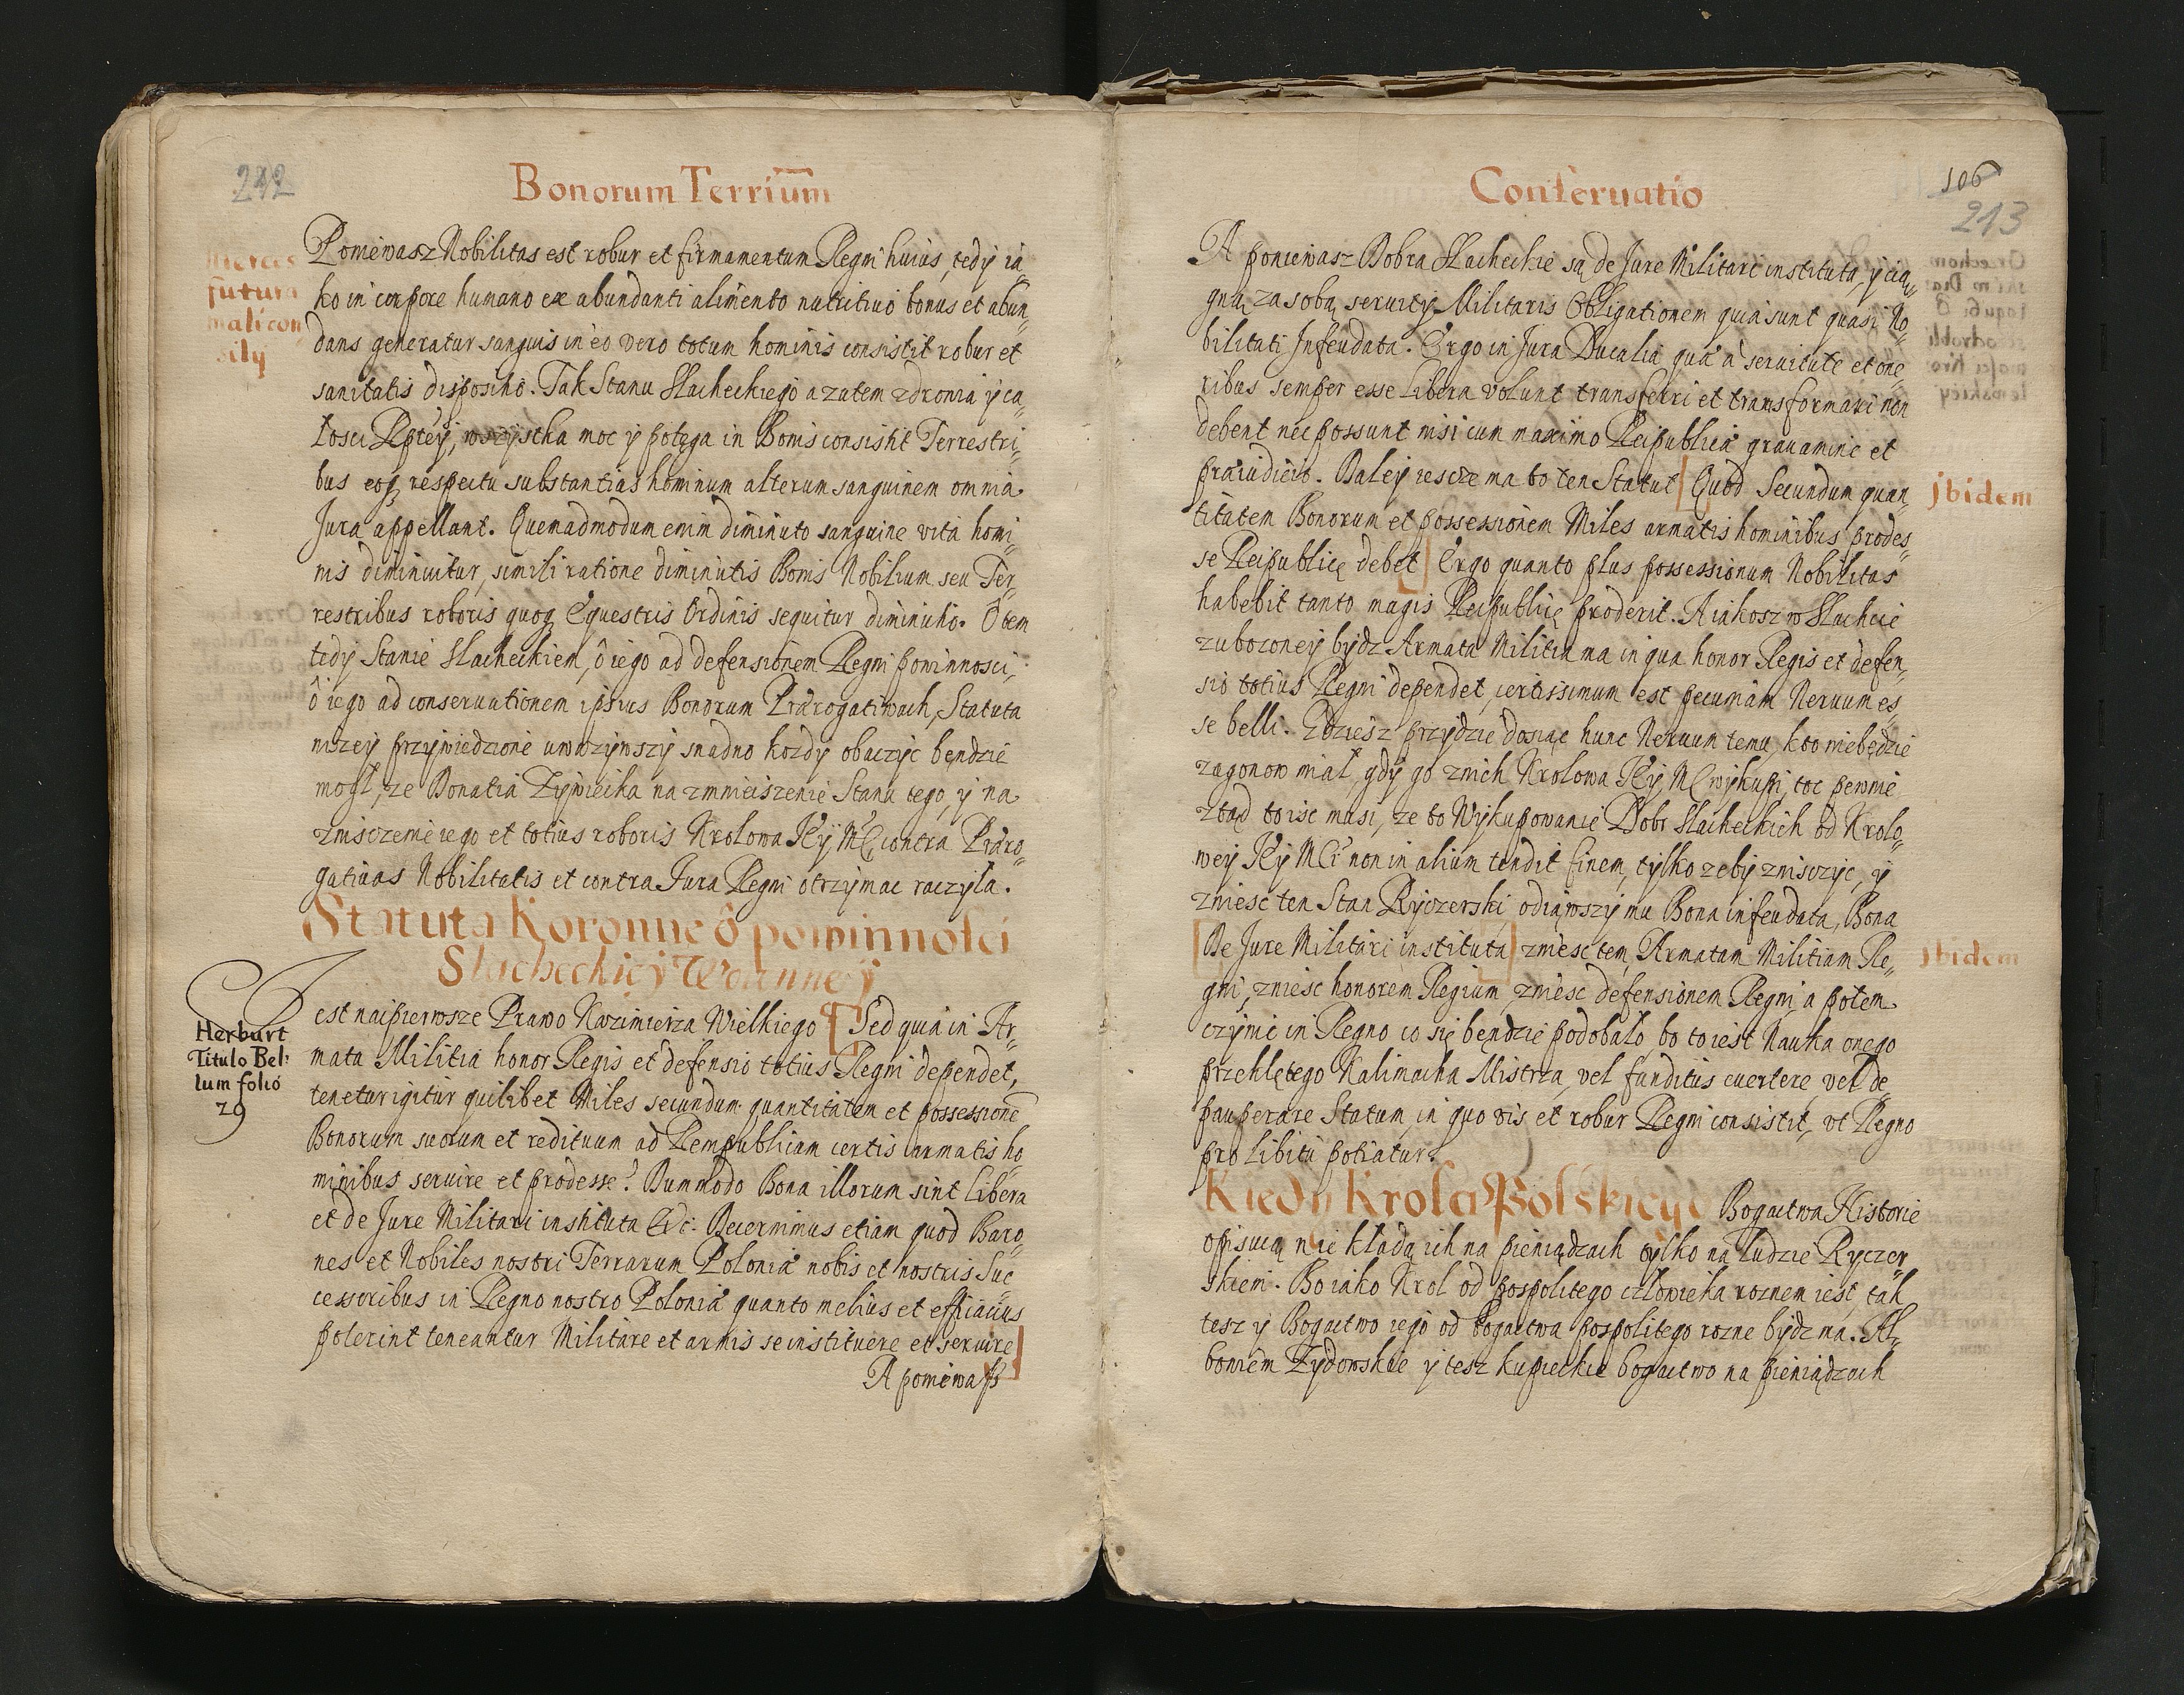 242
Bonorum Terrium̅
Merces
futura
mali con
sily
Poniewasz Nobilitas est robur et firmamentum Regni huius, tedy ia„
ko in corpore humano ex abundanti alimento nutritiuo bonus et abun„
dans generatur sanguis in eo vero totum hominis consistit robur et
sanitatis dispositio. Tak Stanu Slacheckiego a zatem zdrowia y ca„
łosci Rptey, wszystka moc y potęga in Bonis consistit Terrestri„
bus eoq, respectu substantias hominum alterum sanguinem omnia
Jura appellant. Quemadmodum enim diminuto sanguine vita homi„
nis diminuitur, simili ratione diminutis Bonis Nobilium seu Ter„
restribus roboris quoq, Equestris Ordinis sequitur diminutio. O tem
tedy Stanie Slacheckiem, ô iego ad defensionem Regni powinnosci,
ô iego ad conseruationem ipsius Bonorum Prærogatiwach, Statuta
nizey przywiedzione uwazywszy snadno kozdy obaczyc będzie
mogł, ze Donatia Zywiecka na zmnieiszenie Stanu tego, y na
zniszczenie iego et totius roboris Krolowa Jey Mć, contra Præro„
gatiuas Nobilitatis et contra Jura Regni otrzymac raczyła.
Statuta Koronne ô powinnosci
Slacheckiey Woienney
Jest naipierwsze Prawo Kazimierza Wielkiego [Sed quia in Ar„
Herburt
Titulo Bel:
lum folio
29
mata Militia honor Regis et defensio totius Regni dependet,
tenetur igitur quilibet Miles secundum quantitatem et possessionē
Bonorum suorum et redituum ad Rempublicam certis armatis ho
minibus seruire et prodesse? Dummodo Bona illorum sint Libera
et de Jure Militari instituta &c: Decernimus etiam quod Baro„
nes et Nobiles nostri Terrarum Poloniæ nobis et nostris Suc
cessoribus in Regno nostro Poloniæ quanto melius et efficacius
poterint teneantur Militare et armis se instituere et seruire]
A poniewasz
106
213
Conseruatio
A poniewasz Dobra Slacheckie są de Jure Militari instituta, y cią„
gną za sobą seruity Militaris Obligationem quia sunt quasi No„
bilitati Infeudata. Ergo in Jura Ducalia quæ à seruitute et one„
ribus semper esse Libera volunt transferri et transformari non
debent nec possunt nisi cum maximo Reipublicæ grauamine et
præiudicio. Daley iescze ma to ten Statut [Quod Secundum quan„
Jbidem
titatem Bonorum et possessionem Miles armatis hominibus prodes„
se Reipublicę debet] Ergo quanto plus possessionum Nobilitas
habebit tanto magis Reipublicę proderit. A iakosz w Slachcie
zubozoney bydz Armata Militia ma in qua honor Regis et defen„
sio totius Regni dependet, certissimum est pecuniam Neruum es„
se belli. Zdziesz przydzie dosiąc hunc Neruum temu, kto niebędzie
zagonow miał, gdy go znich Krolowa Jey Mć wykupi, toc pewnie
ztąd to isc musi, ze to Wykupowanie Dobr Slacheckich od Krolo„
wey Jey Mći non in alium tendit finem, tylko zeby zniszczyc, y
zniesc ten Stan Ryczerski odiąwszy mu Bona infeudata, Bona
[De Jure Militari instituta] zniesc tem, Armatam Militiam Re„
Jbidem
gni, zniesc honorem Regium zniesc defensionem Regni, a potem
czynic in Regno co się będzie podobało, bo to iest Nauka onego
przeklętego Kalimacha Mistrza, vel funditus euertere, vel de
pauperare Statum, in quo vis et robur Regni consistit, vt Regno
pro libitu potiatur.
Kiedy Krola Polskiego Bogactwa Historie
opisuią nie kładą ich na pieniądzach tylko na ludzie Ryczer„
skiem. Bo iako Krol od pospolitego człowieka roznem iest, tak
tesz y Bogactwo iego od bogactwa pospolitego rozne bydz ma. Al„
bowiem Zydowskie y tesz kupieckie bogactwo na pieniądzach